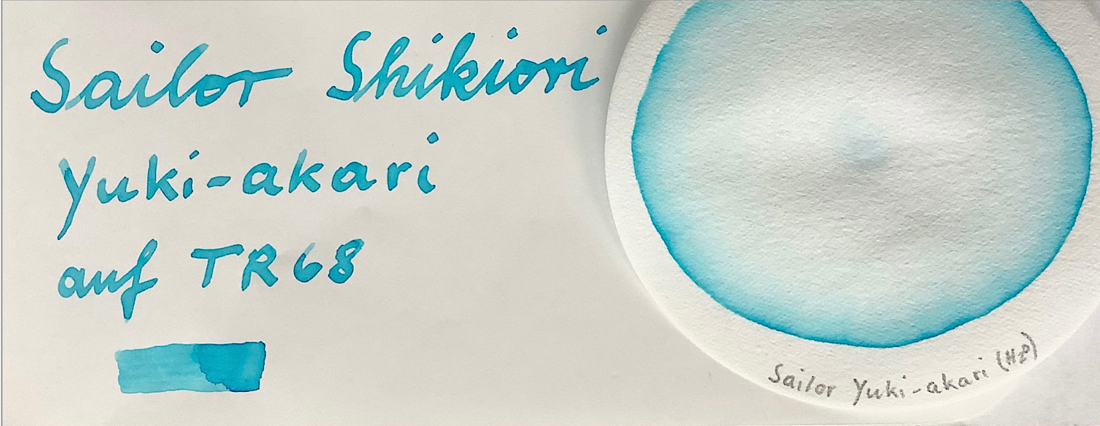 Sailor Shikiori
Yuki-akari
auf TR68
Sailor Yuki-akari (HP)